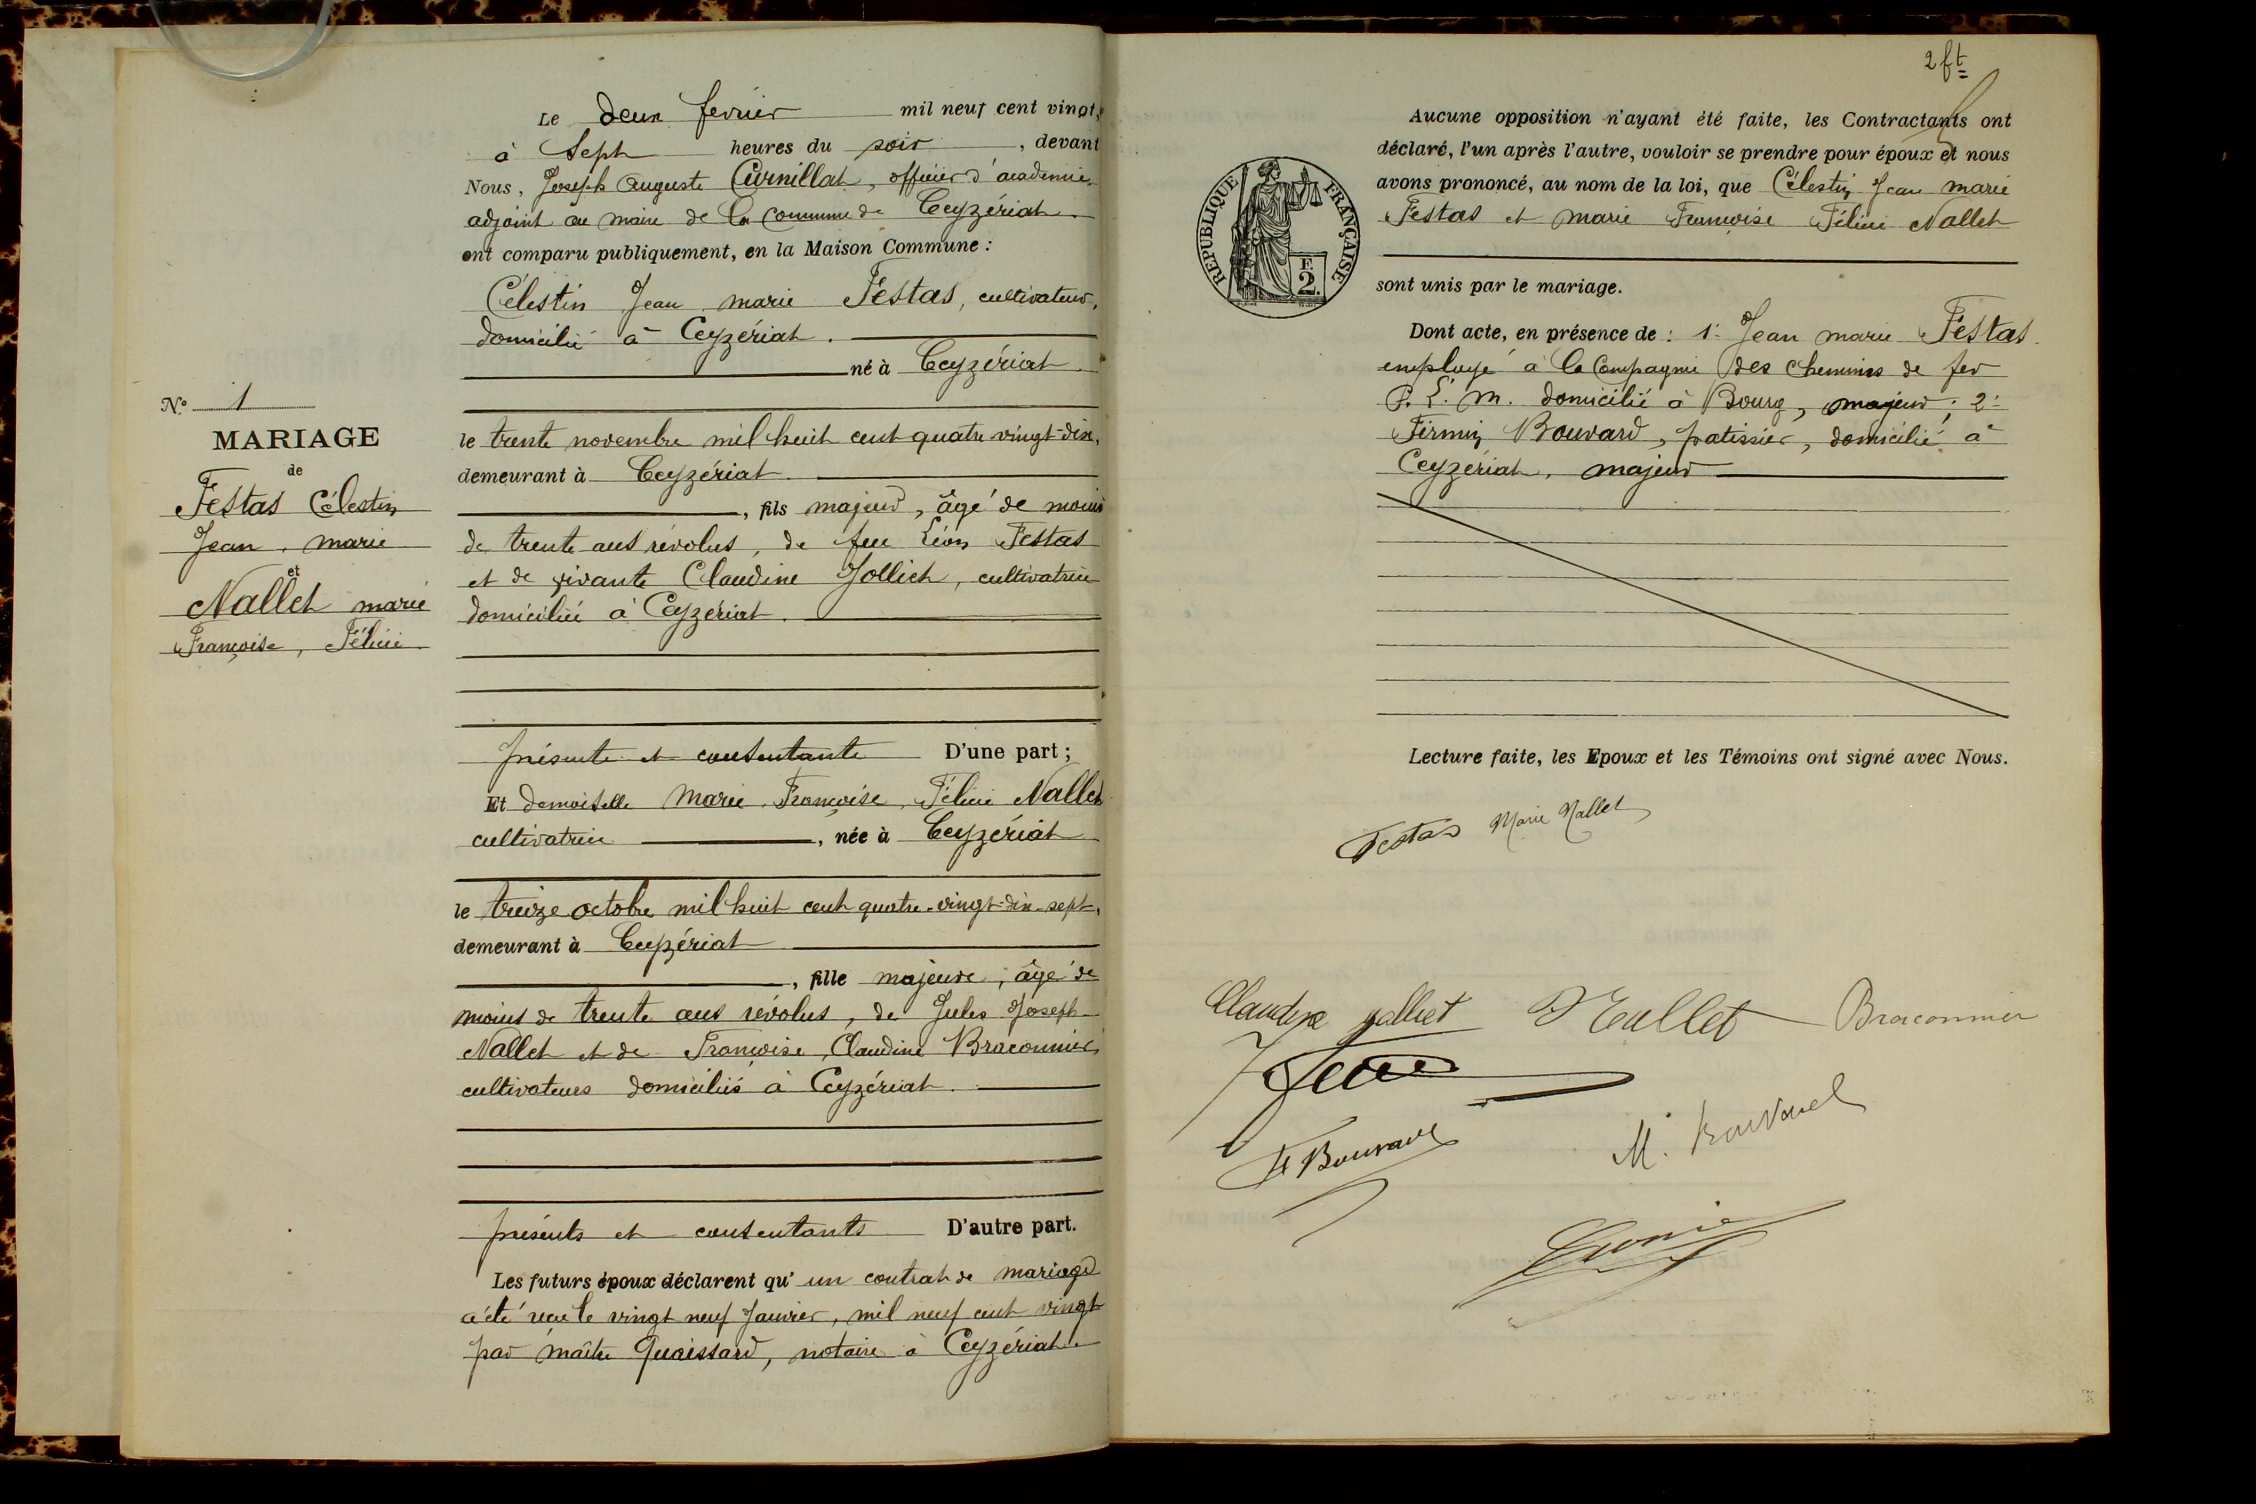 Le deux février mil neuf cent vingt,
à Sept heures du soir, devant
Nous, Joseph Auguste Curnillat, officier d'académie,
adjoint au maire de la commune de Ceyzériat
ont comparu publiquement, en la Maison Commune :
Célestin Jean marie Festas, cultivateur,
domicilié à Ceyzériat.
né à Ceyzériat
le trente novembre mil huit cent quatre-vingt-dix,
demeurant à Ceyzériat
, fils majeur, âgé de moins
de trente ans révolus, de feu Léon Festas
et de vivante Claudine Jolliet, cultivatrice
domiciliée à Ceyzériat.
présente et consentante D'une part ;
Et demoiselle Marie Françoise Félicie Nallet
cultivatrice, née à Ceyzériat
le treize octobre mil huit cent quatre-vingt-dix-sept,
demeurant à Ceyzériat
, fille majeure, âgé de
moins de trente ans révolus, de Jules Joseph
Nallet et de Françoise Claudine Braconnier
cultivateurs domiciliés à Ceyzériat.
présents et consentants D'autre part.
Les futurs époux déclarent qu'un contrat de mariage
a été reçu le vingt neuf Janvier, mil neuf cent vingt
par maître Quaissard, notaire à Ceyzériat.
N.º 1
MARIAGE
de
Festas Célestin
Jean, marie
et
Nallet marie
Françoise, Félicie
2 ft
Aucune opposition n'ayant été faite, les Contractants ont
déclaré, l'un après l'autre, vouloir se prendre pour époux et nous
avons prononcé, au nom de la loi, que Célestin Jean marie
Festas et marie Françoise Félicie Nallet
sont unis par le mariage.
RÉPUBLIQUE FRANÇAISE
F.
2.
Dont acte, en présence de : 1º Jean marie Festas
employé à la Compagnie des chemins de fer
P. L. M. domicilié à Bourg, majeur ; 2º
Firmin Bouvard, patissier, domicilié à
Ceyzériat, majeur
Lecture faite, les Epoux et les Témoins ont signé avec Nous.
Festas Marie Nallet
Claudine Jolliet Nallet Braconnier
F Bouvard
M. Bouvard